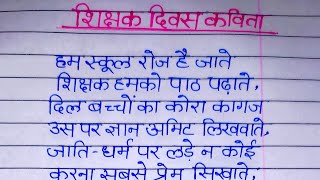 शिक्षक दिवस कविता
हम स्कूल रोज है जाते
शिक्षक हमको पाठ पढ़ाते,
दिल बच्चों का कोरा कागज
उस पर ज्ञान अमिट लिखवाते,
जाति-धर्म पर लड़े न कोई
करना सबसे प्रेम सिखाते,